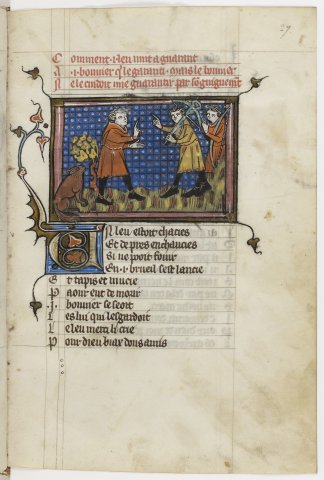 27
Comment .i. leu vint a garant
A .i. bonnier qui le garanti mais le bonier
Ne le cuidoit mie guarantir par son guignement
Un leu estoit chacies
Et de pres enchaucies
Si ne pooit fouir
En .i. brueil sest lancie
Et tapis et mucie
Paour eut de morir
.i. bonnier se seoit
Les lui qui lesgardoit
Le leu merci li crie
Pour dieu biax dous amis